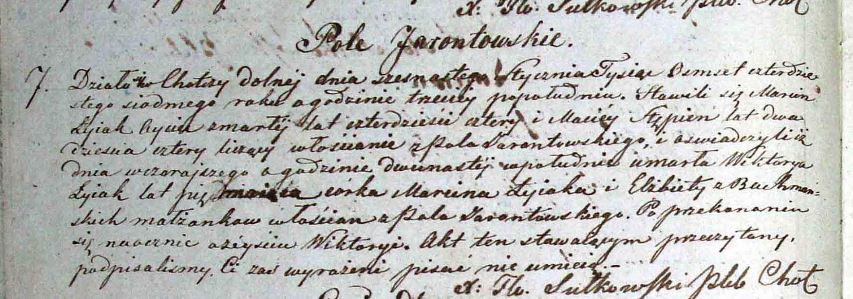 X: Fl: Sulkowski pleb. Chot
Pole Jarontowskie.
7. Działo w Chotczy dolnej dnia szesnastego Stycznia Tysiąc Osmset czterdzie
stego siodmego roku o godzinie trzeciy popołudniu. Stawili się Marcin
Łyiak Oyciec zmarłéy lat czterdziesci cztery i Macićy Stępien lat dwa
dziescia cztery liczący włoscianie z Pola Jarontowskiego, i oswiadczyli iż
dnia wczorajszego o godzinie dwunastéy wpołudnie umarła Wiktorya
Łyiak lat corka Marcina Łyiaka i Elżbiety z Bachman-
skich małżonkow włoscian z Pola Jarontowskiego. Po przekonaniu
się naocznie o zeyściu Wiktoryi. Akt ten stawaiącym przeczytany,
podpisalismy, Ci zas wyrażeni pisać nie umieią
X: Fl: Sulkowski pleb Chot